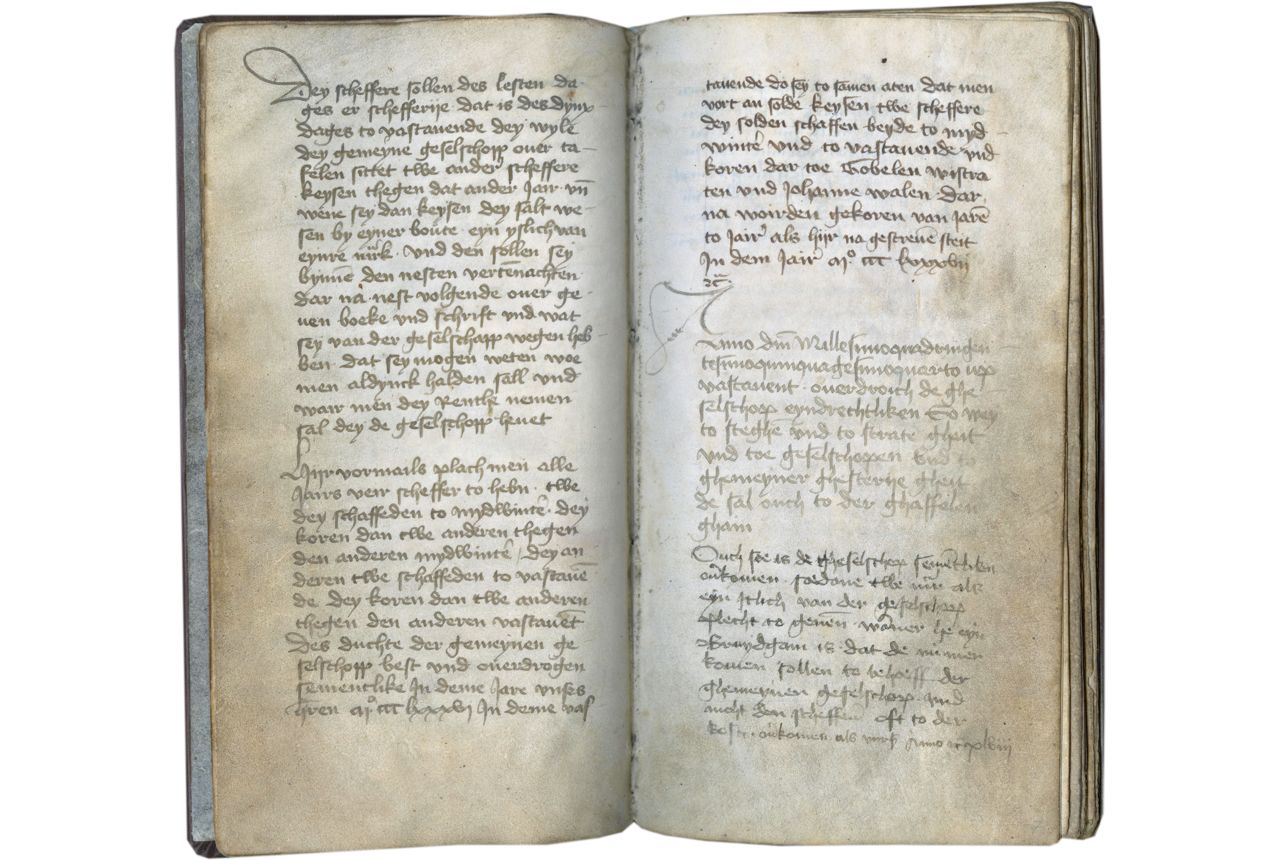 Dey scheffere sollen des lesten da-
ges er schefferije dat is des dynx
dages to vastauende dey wyle
dey gemeyne geselschopp ouer ta-
felen sittet twe ander scheffere
keysen thegen dat ander Jar vn̄
wene sey dan keysen dey salt we-
sen by eyner boute eyn yslich van
eynre mrk. vnd den sollen sey
bynnē den nesten vertēnachten
dar na nest volgende ouer ge-
uen boeke vnd schrift vnd wat
sey van der geselschapp wegen heb-
ben dat sey mogen weten woe
men aldynck halden sall vnd
wair men dey Renthe nemen
sal dey de geselschopp heuet
Hijr vormails plach men alle
Jairs veir scheffer to hebn. twe
dey schaffeden to mydwinte. dey
koren dan twe anderen thegen
den anderen mydwinte / dey an
deren twe schaffeden to vastauē
de dey koren dan twe anderen
thegen den anderen vastauēt
Des duchte der gemeynen ge
selschopp best vnd ouerdrogen
sementlike In deme Jare vnses
heren Mº CCC lxxxvj In deme vas
tauende do sey to samen aten dat men
vort an solde keysen twe scheffere
dey solden schaffen beyde to myd
winte vnd to vastauende vnd
koren dar toe Gobelen wistra
ten vnd Johanne walen. Dar
na woirden gekoren van Jarē
to Jair als hijr na gescreuē steit
In dem Jair Mº CCC lxxxvij
Anno dm̄ Millesimoquadringen
tesimoquinquagesimoquarto vp
vastauent. ouerdroich de ghe
selschopp eyndrechtliken So wey
to steghē vnd to strate gheit
vnd toe geselschoppen vnd to
ghemeyner ghesterije gheit
de sal ouch to der ghaffelen
gham
Ouch soe is de gheselschop semētliken
ouerkomen. sodane twe mrk als
eyn Itlich van der geselschopp
plecht to geuen. waner he eyn
Bruydgam is. dat de
komen sollen to behoeff der
ghemeynen geselschopp. vnd
nicht den scheffern oft to der
kost. ouerkomen als vursc Anno xlviii